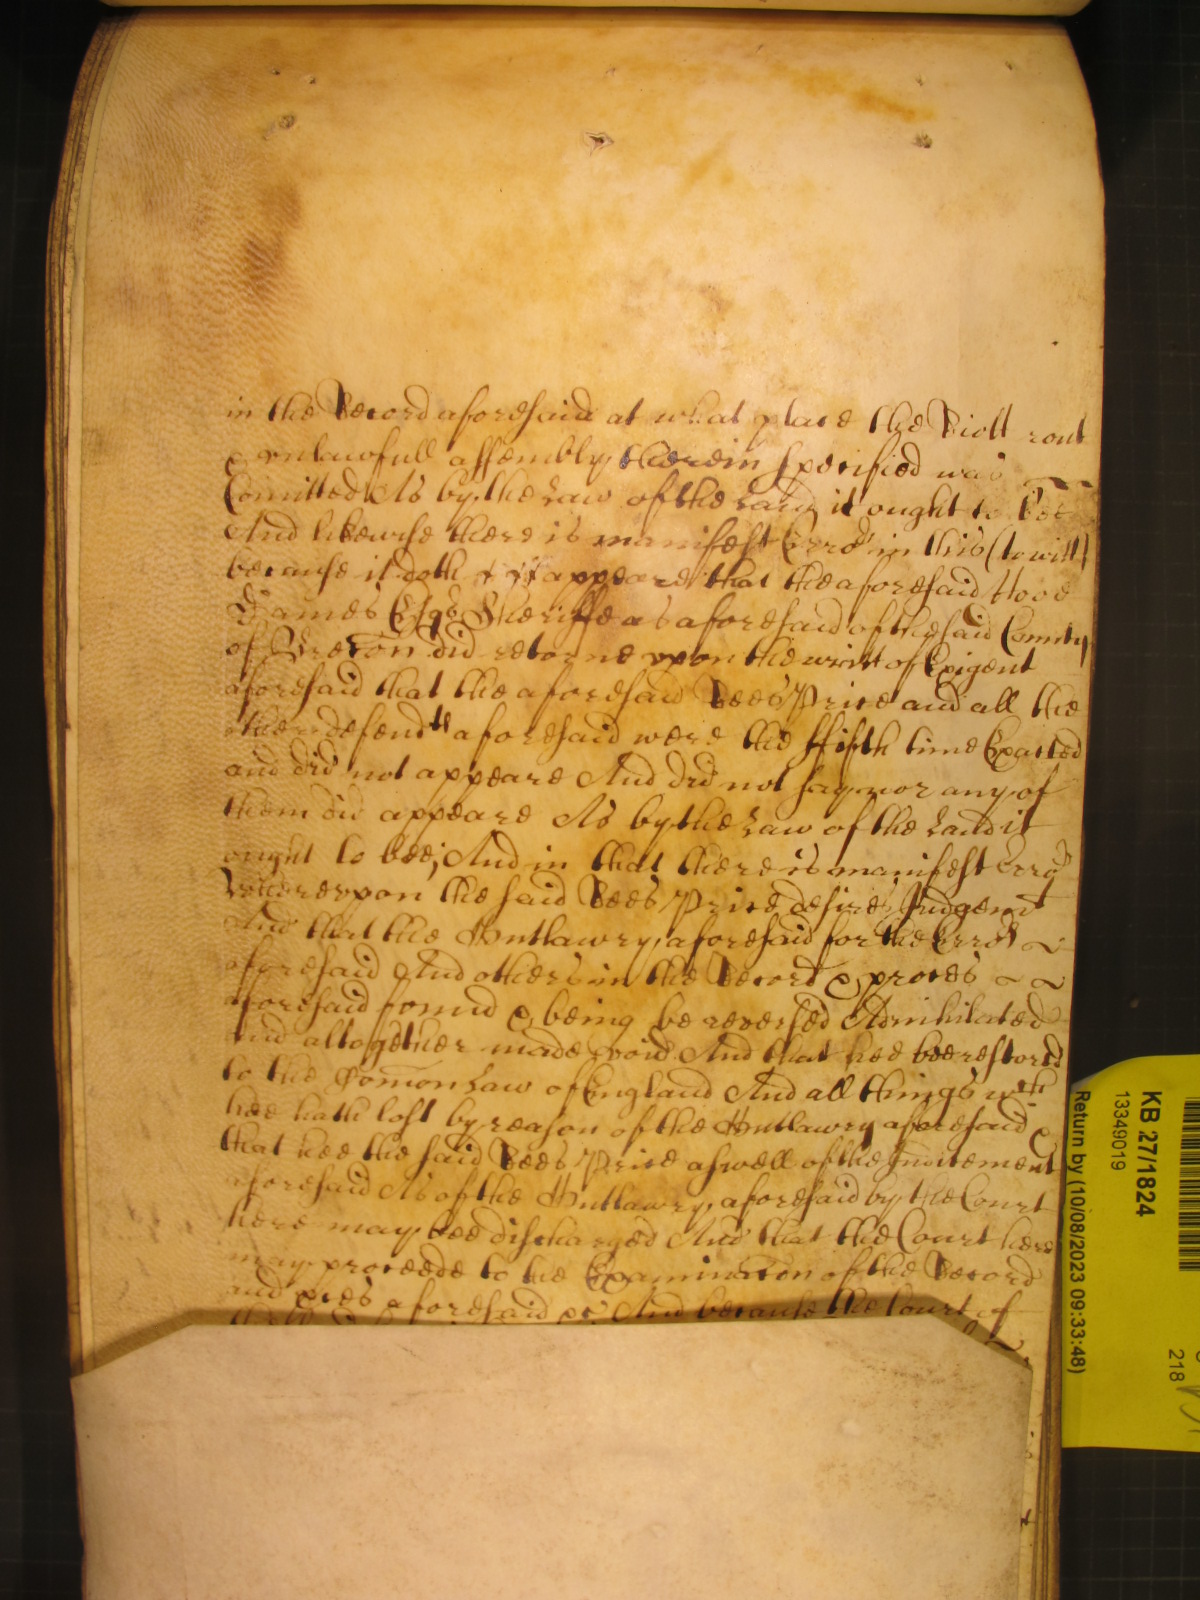 in the Record aforesaid at what place the Riott rout
& vnlawfull assembly therein specified was
Comitted As by the Law of the Land it ought to bee
And likewise there is manifest Erro:r in this (to witt)
because it doth appeare that the aforesaid Hoo
James Esqr Sheriffe as aforesaid of the said County
of Brecon did retorne vpon the writt of Exigent
aforesaid that the aforesaid Rees Price and all the
other defendts aforesaid were the ffifth time Exacted
and did not appeare And did not say nor any of
them did appeare As by the Law of the Land it
ought to bee; And in that there is manifest Error
Wherevpon the said Rees Price desires Judgemt
And that the Outlawry aforesaid for the Errors
aforesaid And others in the Record & proces
aforesaid found & being be reversed Adnihilated
and altogether made void And that hee bee restored
to the Comon Law of England And all things wch
hee hath lost by reason of the Outlawry aforesaid &
that hee the said Rees Price aswell of the Inditement
aforesaid As of the Outlawry aforesaid by the Court
here may bee discharged And that the Court here
may proceede to the Examinacon of the Record
and proces aforesaid &c And because the Court of
KB 27/1824
13349019
Return by (10/08/2023 09:33:48)
218